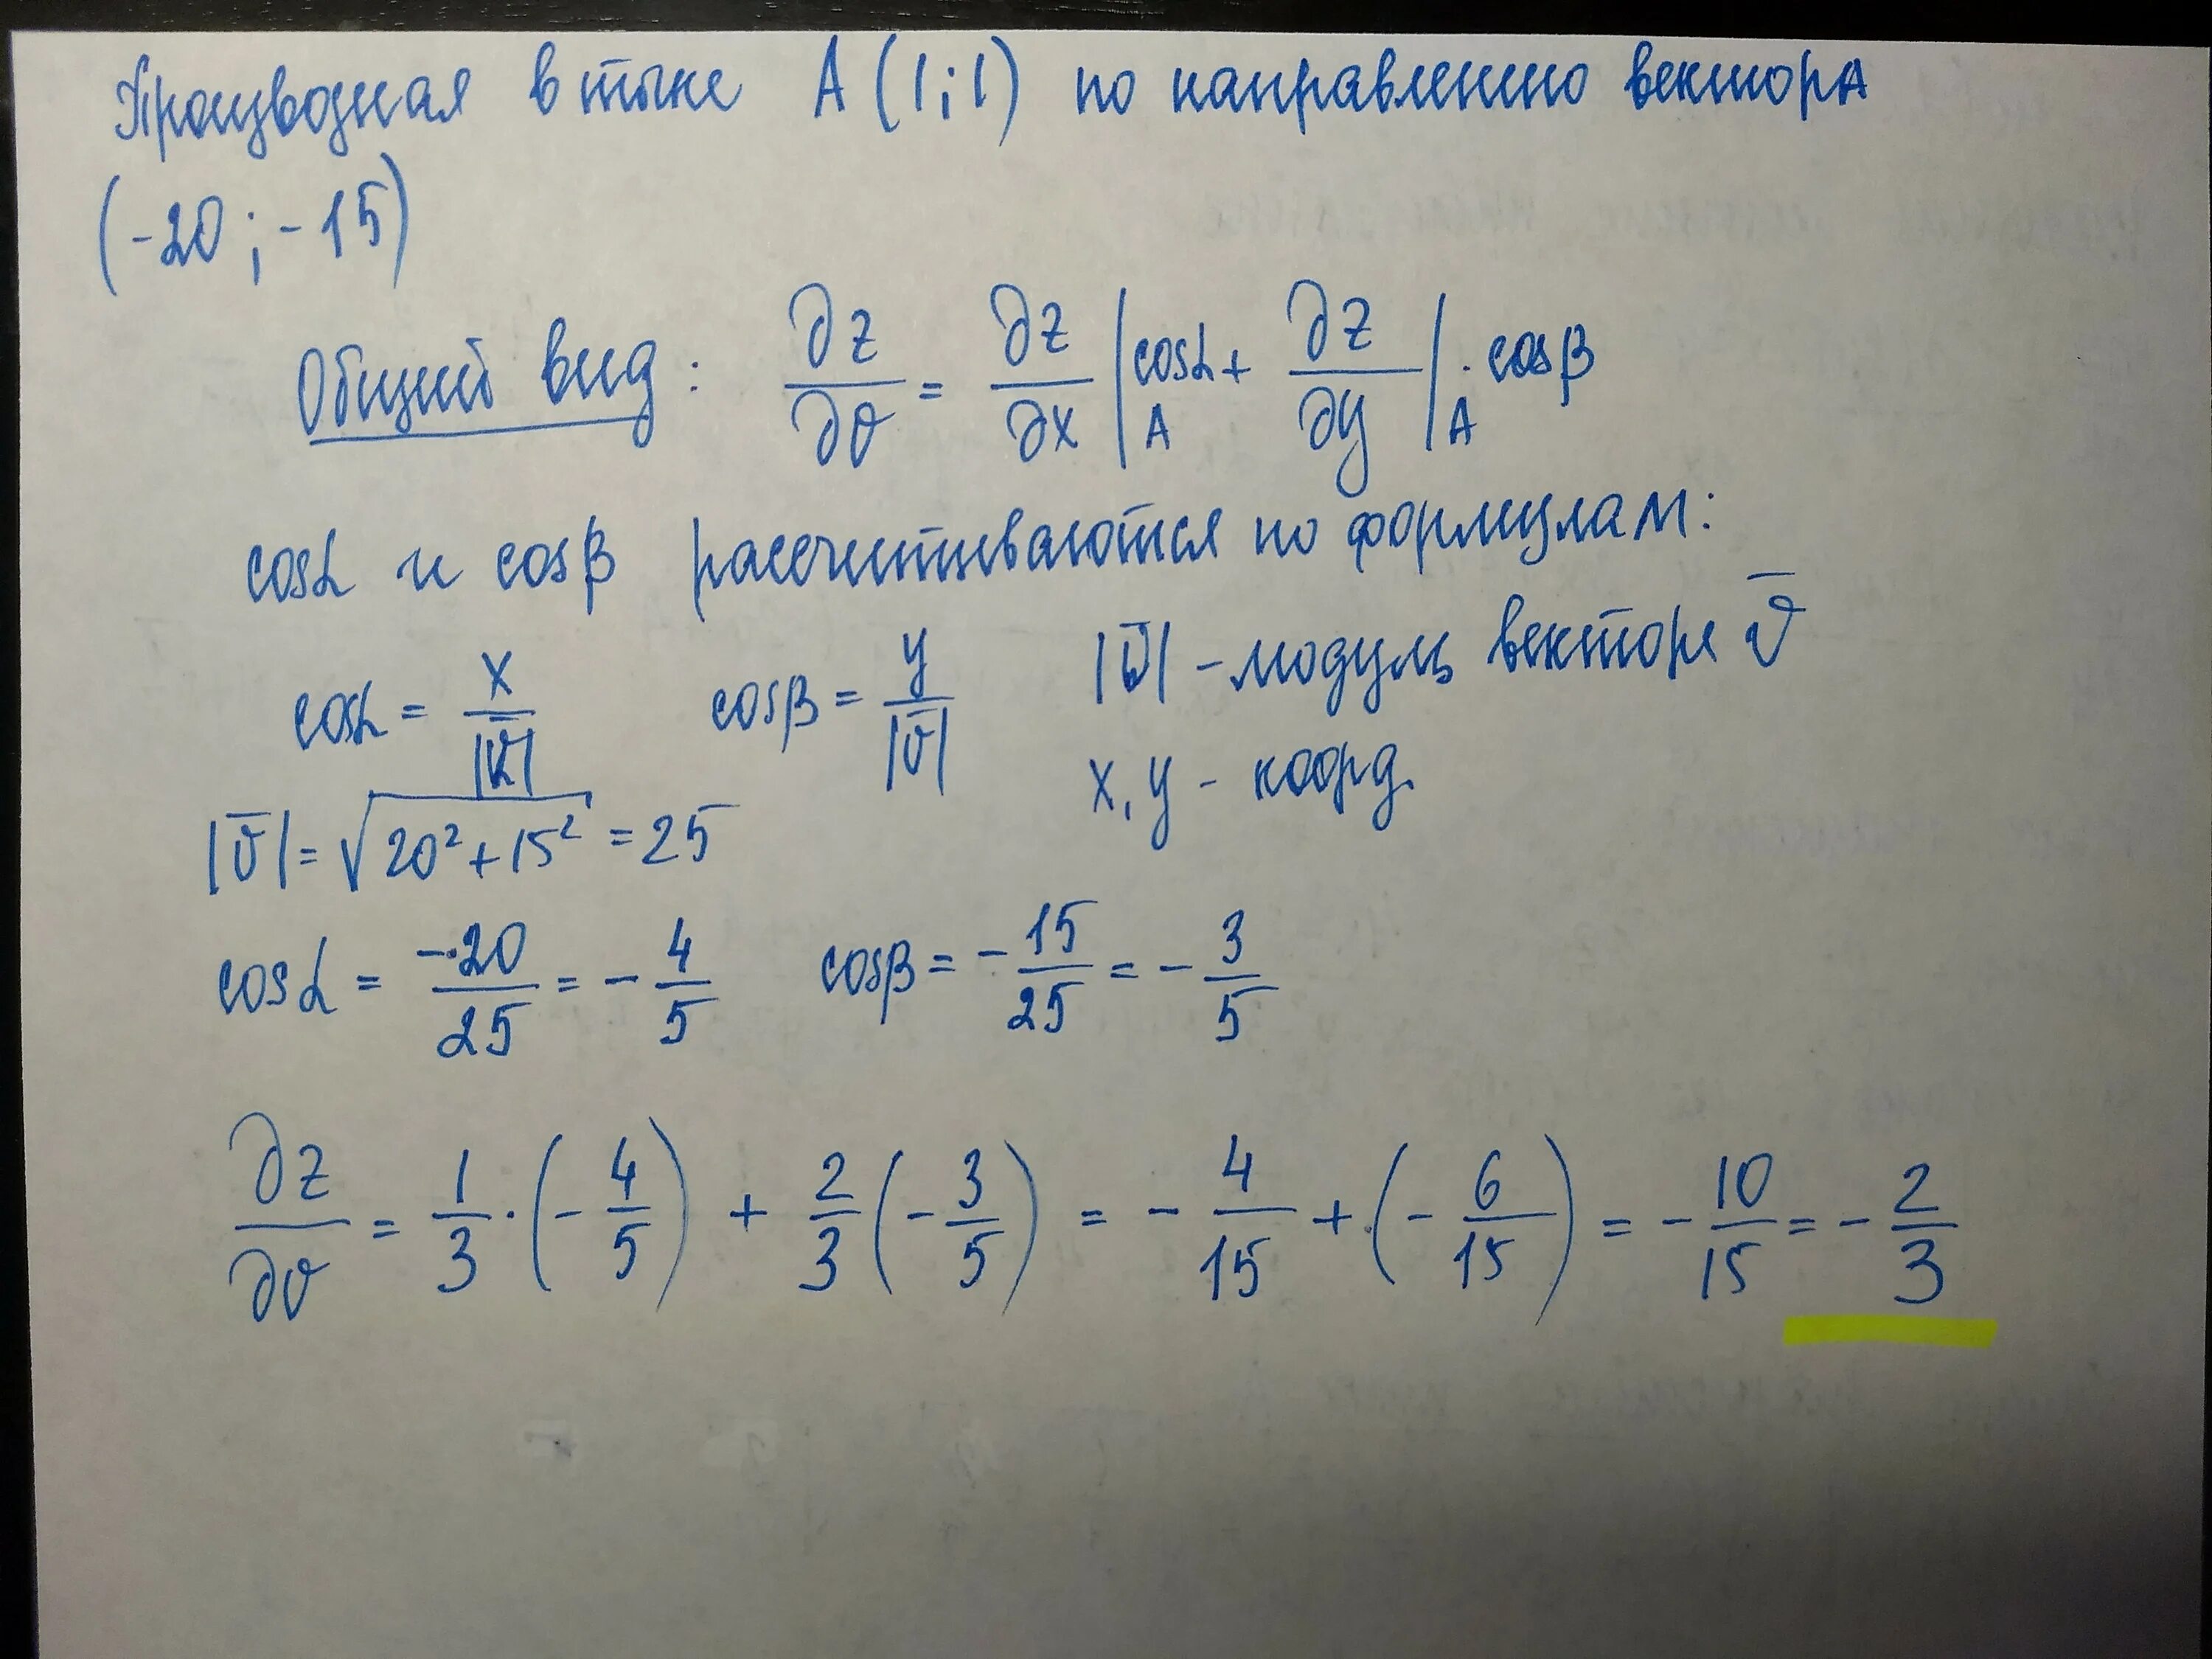 Производная в точке A (1;1) по направлению вектора
(-20;-15)
Общий вид: ∂z/∂v = ∂z/∂x |A cosα + ∂z/∂y |A · cosβ
cosα и cosβ рассчитываются по формулам:
cosα = x/|v̄| cosβ = y/|v̄| |v̄| - модуль вектора v̄
x, y - коорд.
|v̄| = √(20² + 15²) = 25
cosα = -20/25 = - 4/5 cosβ = - 15/25 = - 3/5
∂z/∂v = 1/3 · (- 4/5) + 2/3 (- 3/5) = - 4/15 + (- 6/15) = - 10/15 = - 2/3